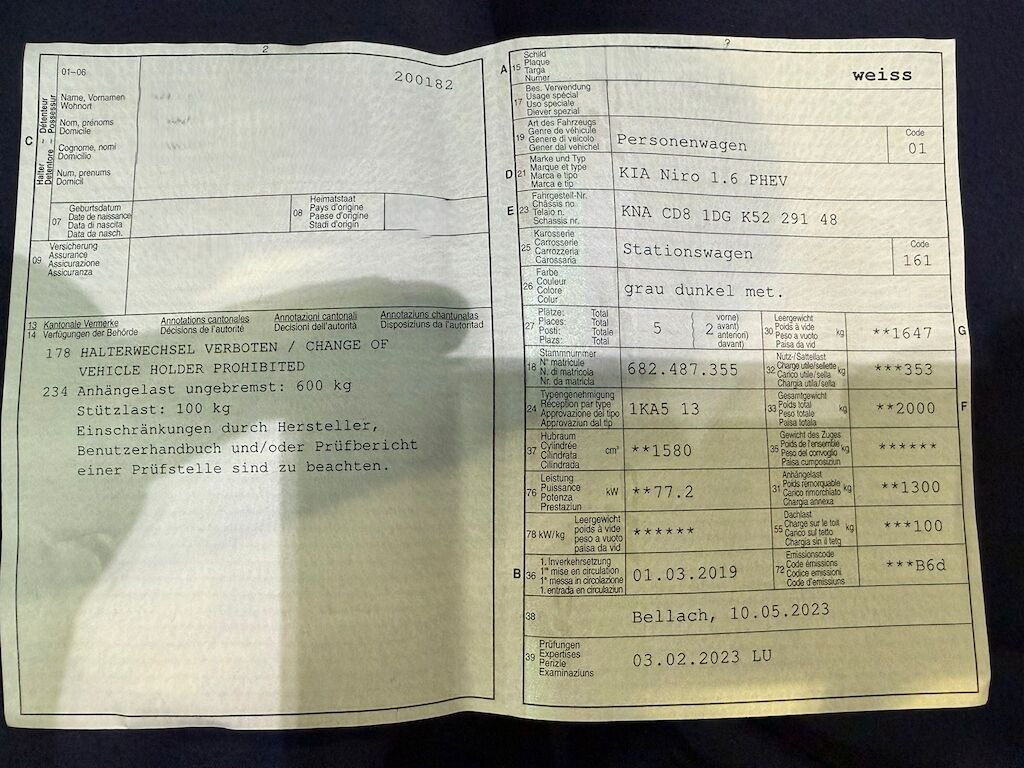 2
01–06
200182
C
Halter ~ Détenteur
Detentore ~ Possessur
Name, Vornamen
Wohnort
Nom, prénoms
Domicile
Cognome, nomi
Domicilio
Num, prenums
Domicil
07
Geburtsdatum
Date de naissance
Data di nascita
Data da nasch.
08
Heimatstaat
Pays d'origine
Paese d'origine
Stadi d'origin
09
Versicherung
Assurance
Assicurazione
Assicuranza
13 Kantonale Vermerke Annotations cantonales Annotazioni cantonali Annotaziuns chantunalas
14 Verfügungen der Behörde Décisions de l'autorité Decisioni dell'autorità Disposiziuns da l'autoritad
178 HALTERWECHSEL VERBOTEN / CHANGE OF
VEHICLE HOLDER PROHIBITED
234 Anhängelast ungebremst: 600 kg
Stützlast: 100 kg
Einschränkungen durch Hersteller,
Benutzerhandbuch und/oder Prüfbericht
einer Prüfstelle sind zu beachten.
A 15
Schild
Plaque
Targa
Numer
weiss
17
Bes. Verwendung
Usage spécial
Uso speciale
Diever spezial
19
Art des Fahrzeugs
Genre de véhicule
Genere di veicolo
Gener dal vehichel
Personenwagen
Code
01
D 21
Marke und Typ
Marque et type
Marca e tipo
Marca e tip
KIA Niro 1.6 PHEV
E 23
Fahrgestell-Nr.
Châssis no
Telaio n.
Schassis nr.
KNA CD8 1DG K52 291 48
25
Karosserie
Carrosserie
Carrozzeria
Carossaria
Stationswagen
Code
161
26
Farbe
Couleur
Colore
Colur
grau dunkel met.
27
Plätze: Total
Places: Total
Posti: Totale
Plazs: Total
5
2
vorne)
avant)
anteriori)
davant)
30
Leergewicht
Poids à vide
Peso a vuoto
Paisa da vid
kg
**1647
G
18
Stammnummer
N° matricule
N. di matricola
Nr. da matricla
682.487.355
32
Nutz-/Sattellast
Charge utile/sellette
Carico utile/sella
Chargia utila/sella
kg
***353
24
Typengenehmigung
Réception par type
Approvazione del tipo
Approvaziun dal tip
1KA5 13
33
Gesamtgewicht
Poids total
Peso totale
Paisa totala
kg
**2000
F
37
Hubraum
Cylindrée
Cilindrata
Cilindrada
cm³
**1580
35
Gewicht des Zuges
Poids de l'ensemble
Peso del convoglio
Paisa cumposiziun
kg
******
76
Leistung
Puissance
Potenza
Prestaziun
kW
**77.2
31
Anhängelast
Poids remorquable
Carico rimorchiato
Chargia annexa
kg
**1300
78 kW/kg
Leergewicht
poids à vide
peso a vuoto
paisa da vid
******
55
Dachlast
Charge sur le toit
Carico sul tetto
Chargia sin il tetg
kg
***100
B 36
1. Inverkehrsetzung
1re mise en circulation
1a messa in circolazione
1. entrada en circulaziun
01.03.2019
72
Emissionscode
Code émissions
Codice emissioni
Code d'emissiuns
***B6d
38
Bellach, 10.05.2023
39
Prüfungen
Expertises
Perizie
Examinaziuns
03.02.2023 LU